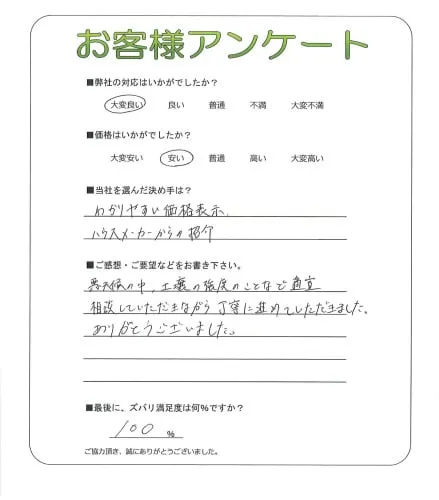 お客様アンケート
■弊社の対応はいかがでしたか?
大変良い 良い 普通 不満 大変不満
■価格はいかがでしたか?
大変安い 安い 普通 高い 大変高い
■当社を選んだ決め手は?
わかりやすい価格表示.
ハウスメーカーからの紹介
■ご感想・ご要望などをお書き下さい。
悪天候の中、土壌の強度のことなど適宜
相談していただきながら丁寧に進めていただきました。
ありがとうございました。
■最後に、ズバリ満足度は何%ですか?
100 %
ご協力頂き、誠にありがとうございました。